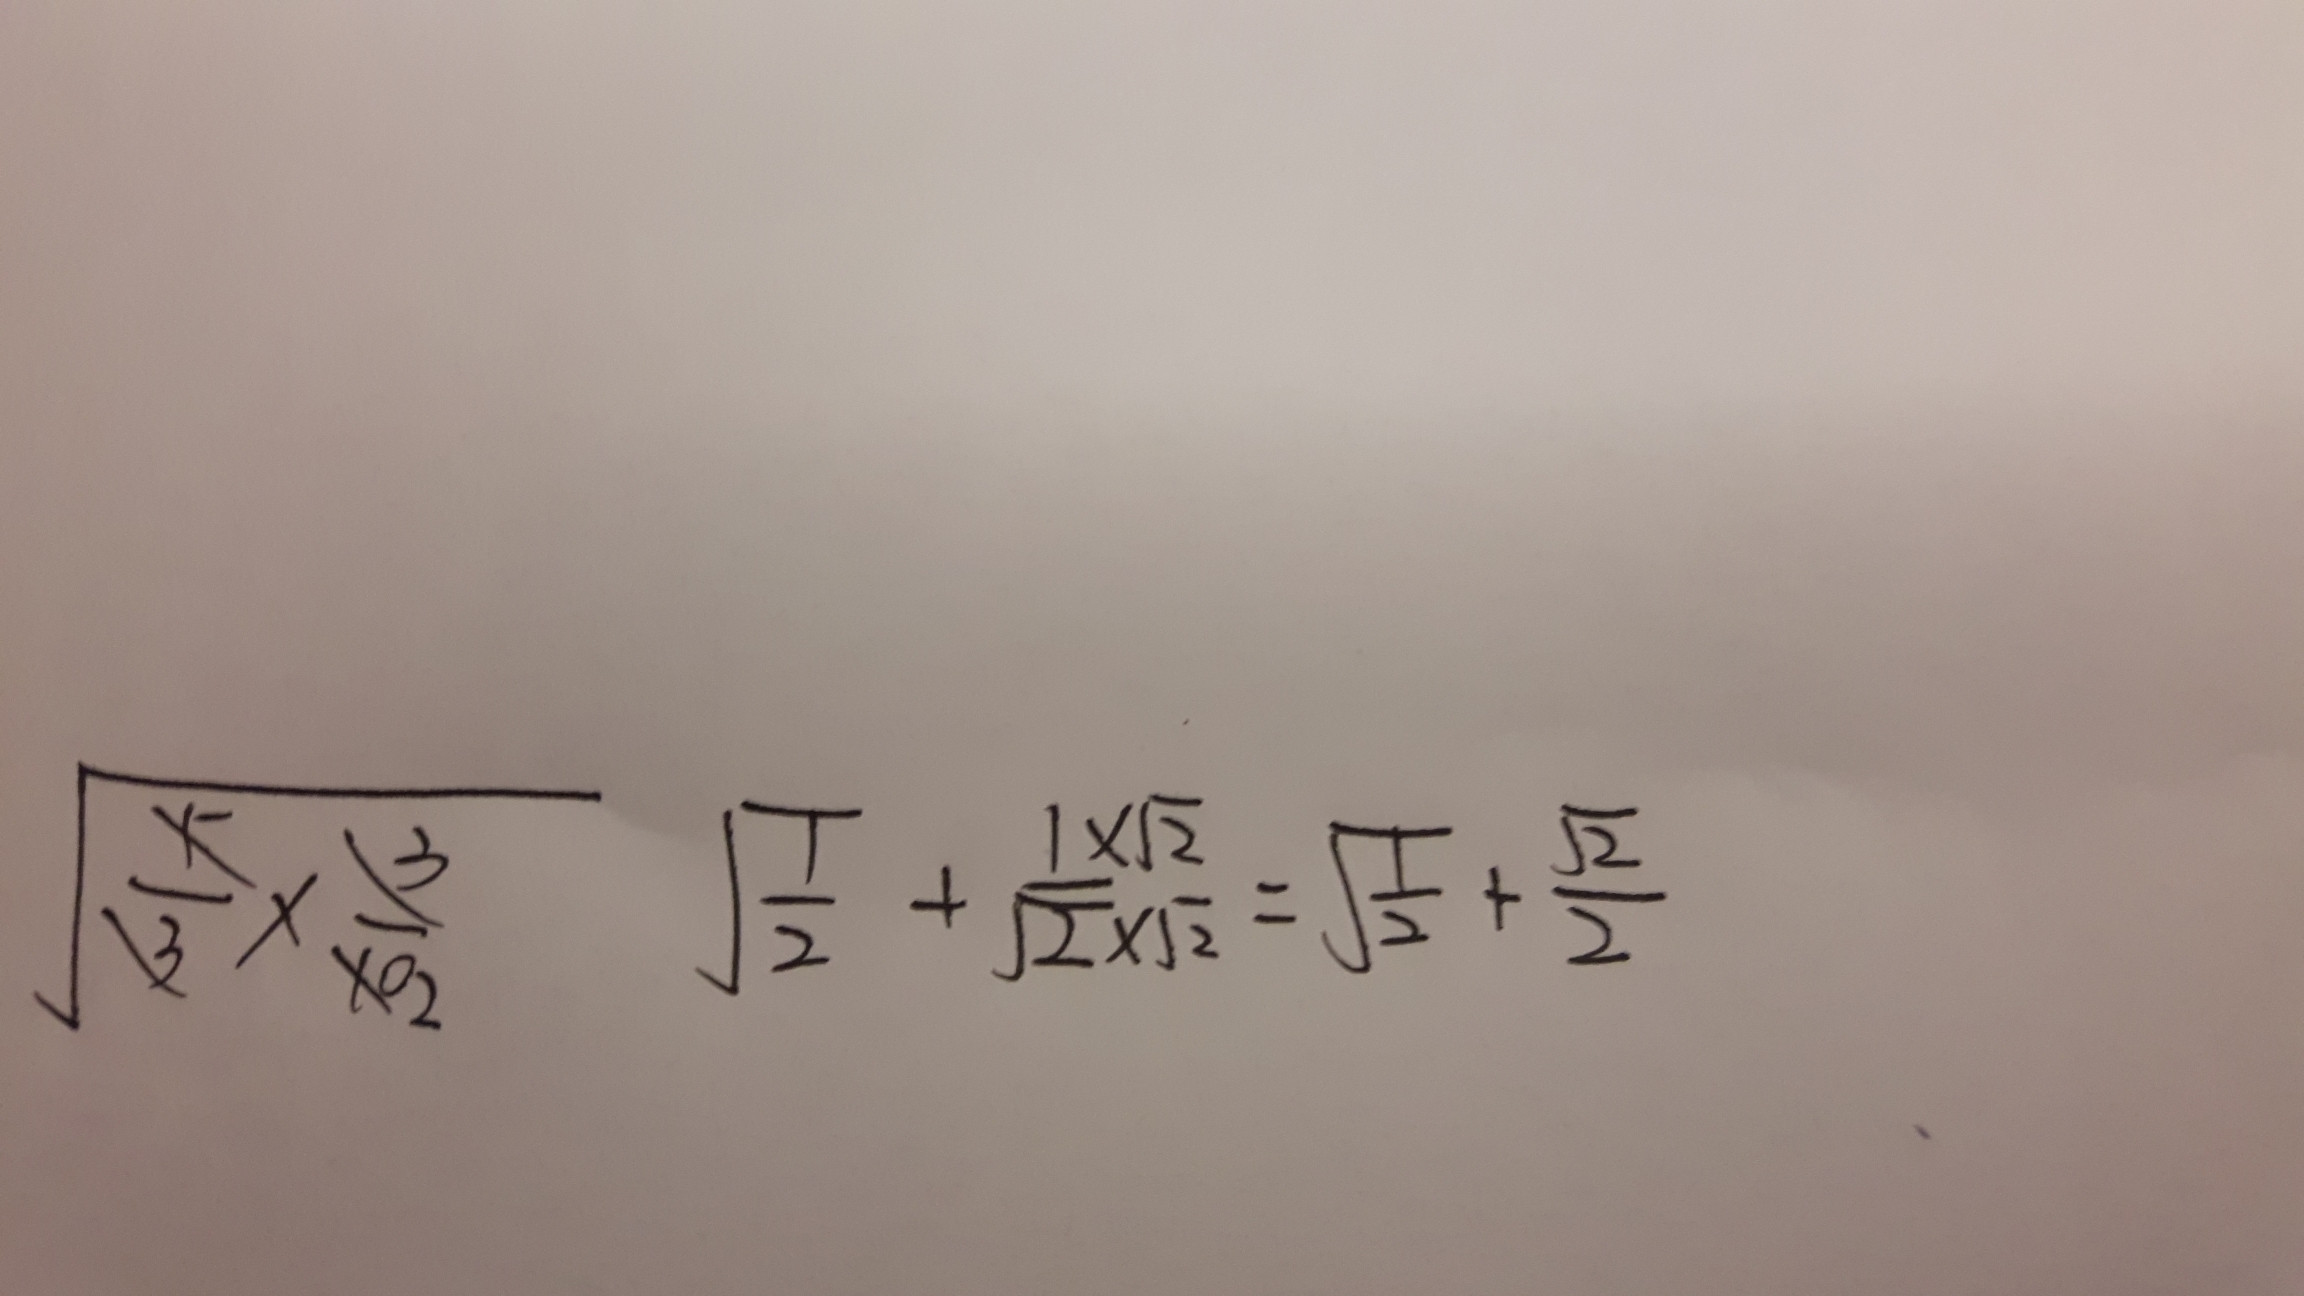 √(5/3 × 3/10 2) √(1/2) + (1×√2)/(√2×√2) = √(1/2) + √2/2